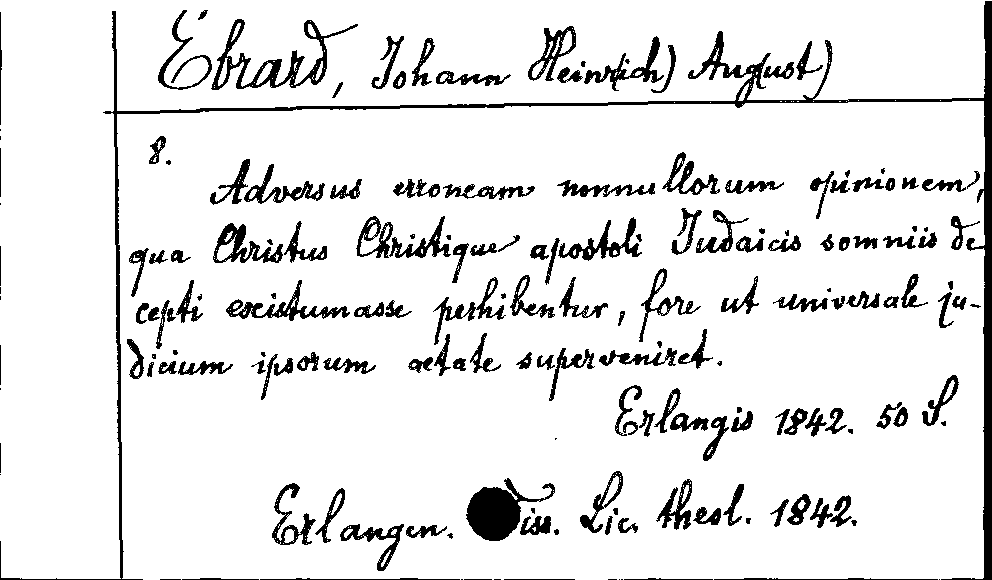 Ebrard, Johann Heinr(ich) Aug(ust)
8.
Adversus erroneam nonnullorum opinionem,
qua Christus Christique apostoli Judaicis somniis de
cepti existumasse perhibentur, fore ut universale ju-
dicium ipsorum aetate superveniret.
Erlangis 1842. 50 S.
Erlangen. Diss. Lic. theol. 1842.